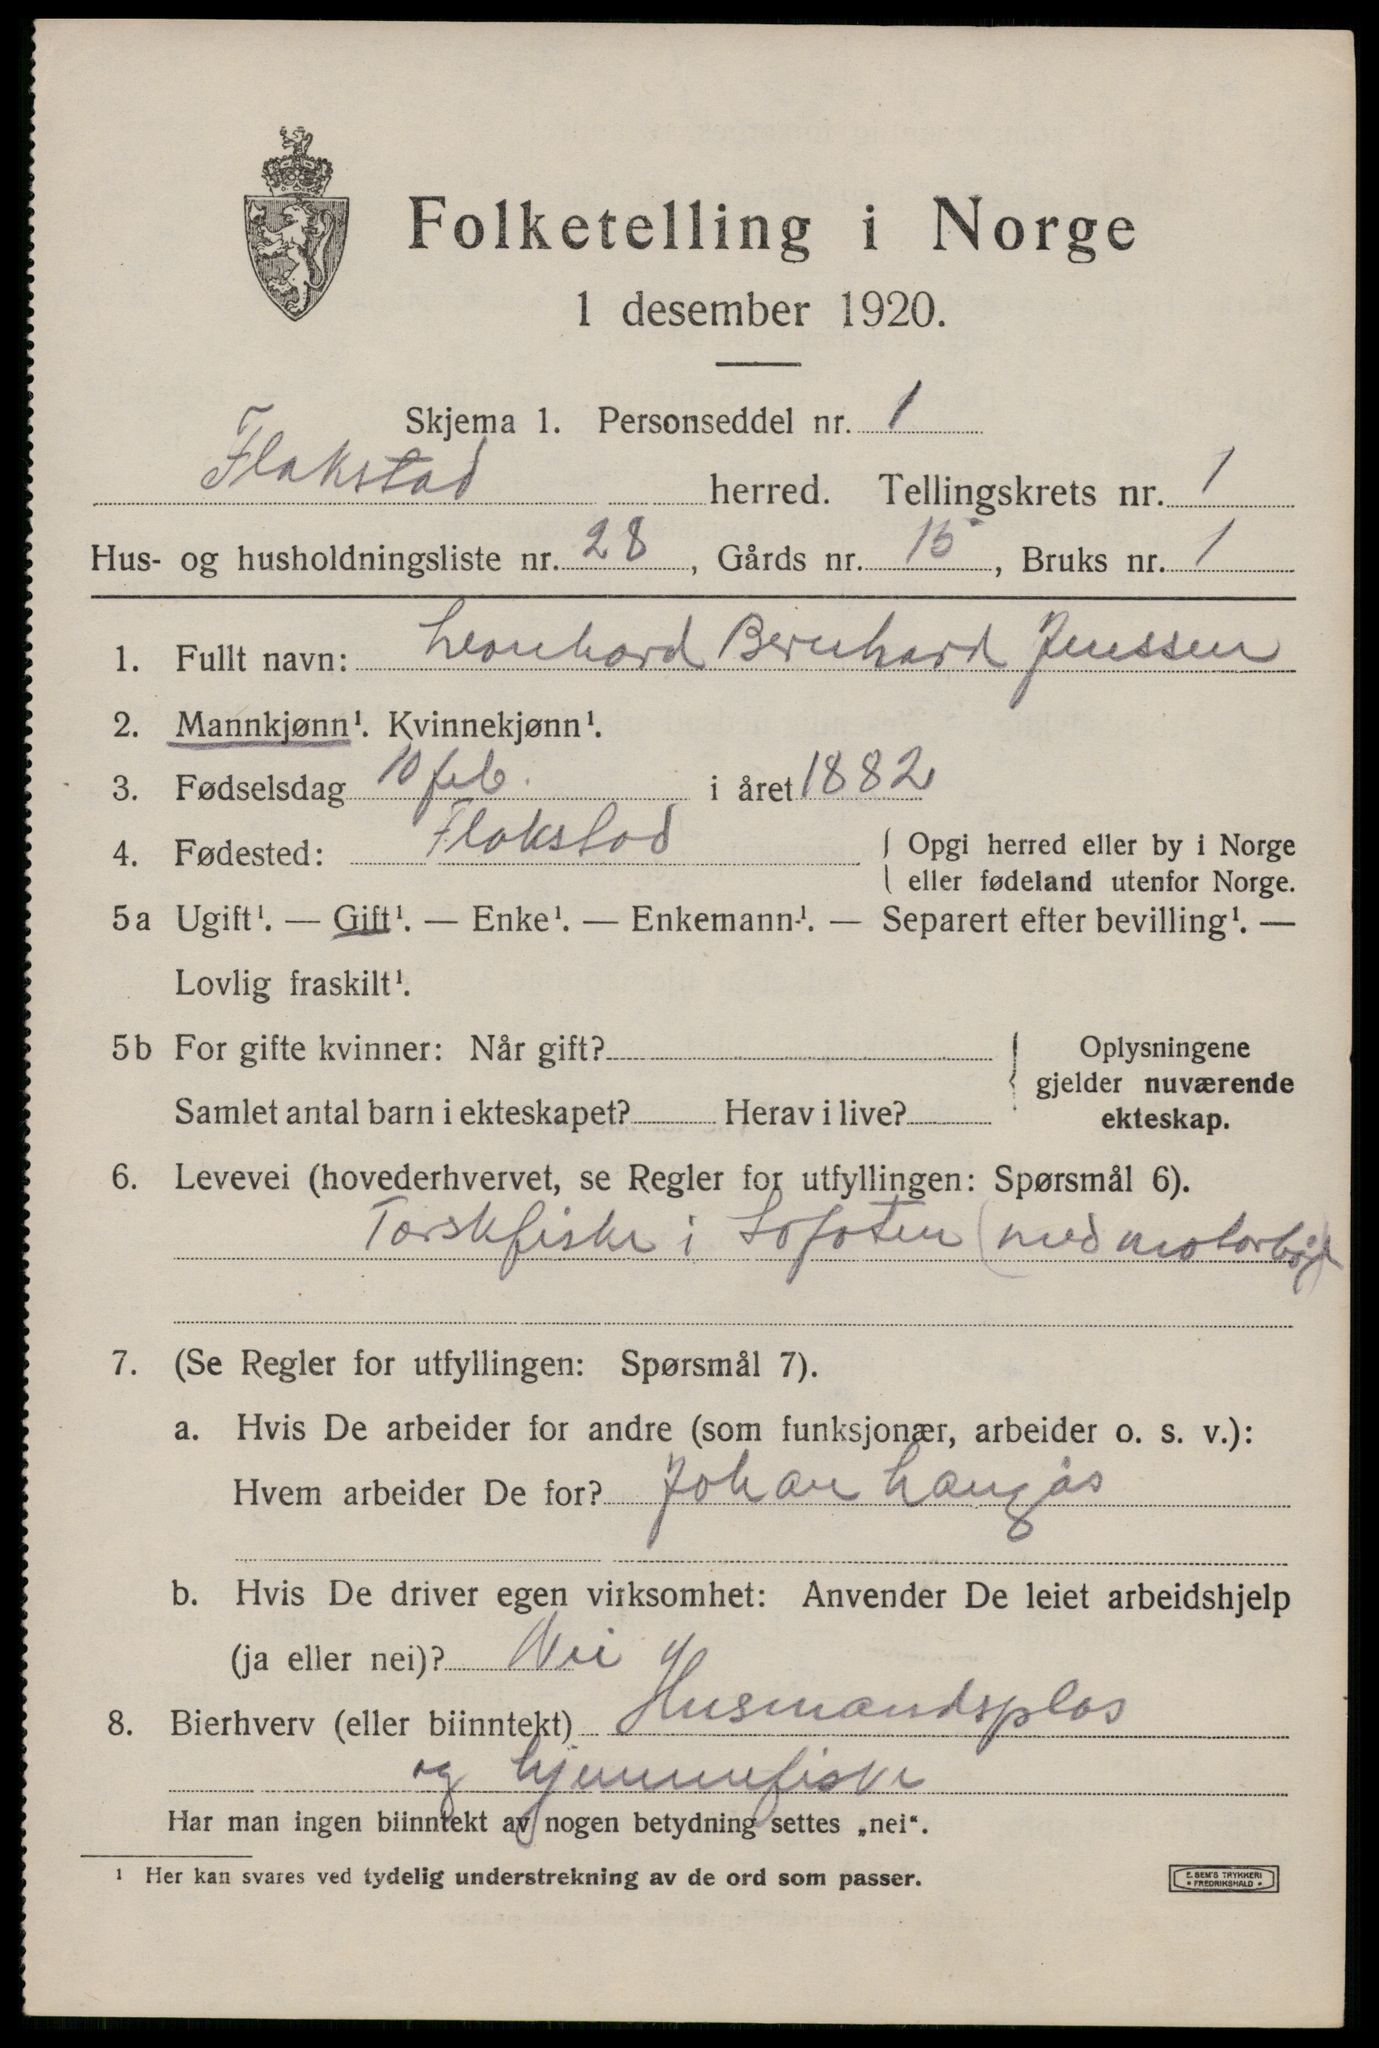 Folketelling i Norge
1 desember 1920.
Skjema 1. Personseddel nr. 1
Flakstad herred. Tellingskrets nr. 1
Hus- og husholdningsliste nr. 28, Gårds nr. 15, Bruks nr. 1
1. Fullt navn: Leonhard Bernhard Jenssen
2. Mannkjønn¹. Kvinnekjønn¹.
3. Fødselsdag 10 feb. i året 1882
4. Fødested: Flakstad { Opgi herred eller by i Norge
eller fødeland utenfor Norge.
5a Ugift¹. — Gift¹. — Enke¹. — Enkemann¹. — Separert efter bevilling¹. —
Lovlig fraskilt¹.
5b For gifte kvinner: Når gift? { Oplysningene
gjelder nuværende
Samlet antal barn i ekteskapet? Herav i live? ekteskap.
6. Levevei (hovederhvervet, se Regler for utfyllingen: Spørsmål 6).
Torskfiske i Lofoten (med motorbåt)
7. (Se Regler for utfyllingen: Spørsmål 7).
a. Hvis De arbeider for andre (som funksjonær, arbeider o. s. v.):
Hvem arbeider De for? Johan Langås
b. Hvis De driver egen virksomhet: Anvender De leiet arbeidshjelp
(ja eller nei)? Nei
8. Bierhverv (eller biinntekt) Husmandsplas
og hjemmefiske
Har man ingen biinntekt av nogen betydning settes „nei“.
¹ Her kan svares ved tydelig understrekning av de ord som passer.
E. SEM'S TRYKKERI
• FREDRIKSHALD •